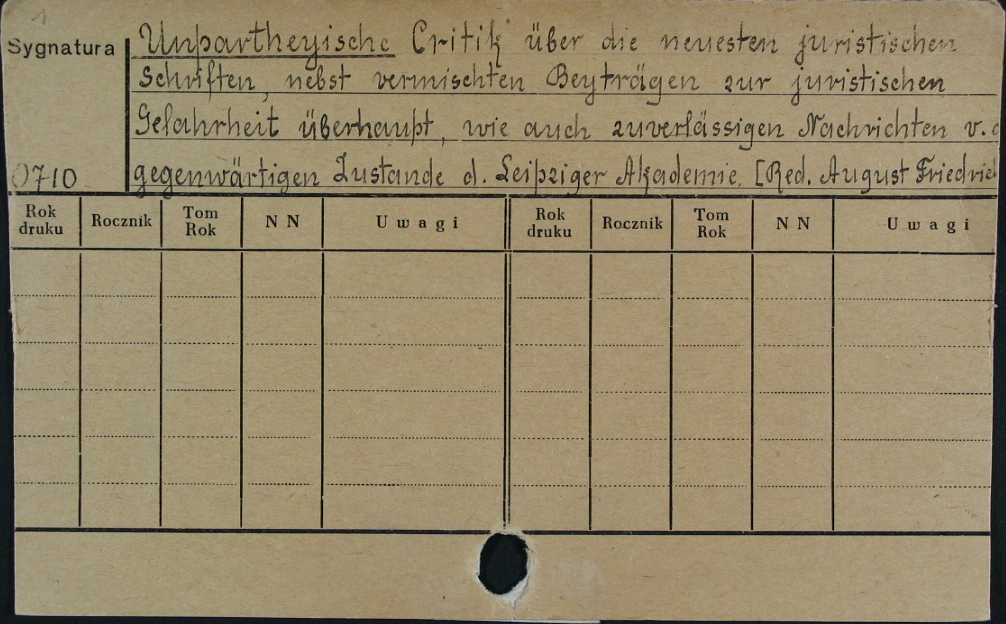 1
Sygnatura
Unpartheyische Critik über die neuesten juristischen
Schriften, nebst vermischten Beyträgen zur juristischen
Gelahrheit überhaupt, wie auch zuverlässigen Nachrichten v. d
0710
gegenwärtigen Zustande d. Leipziger Akademie. [Red. August Friedric
Rok druku Rocznik Tom Rok N N Uwagi Rok druku Rocznik Tom Rok N N Uwagi